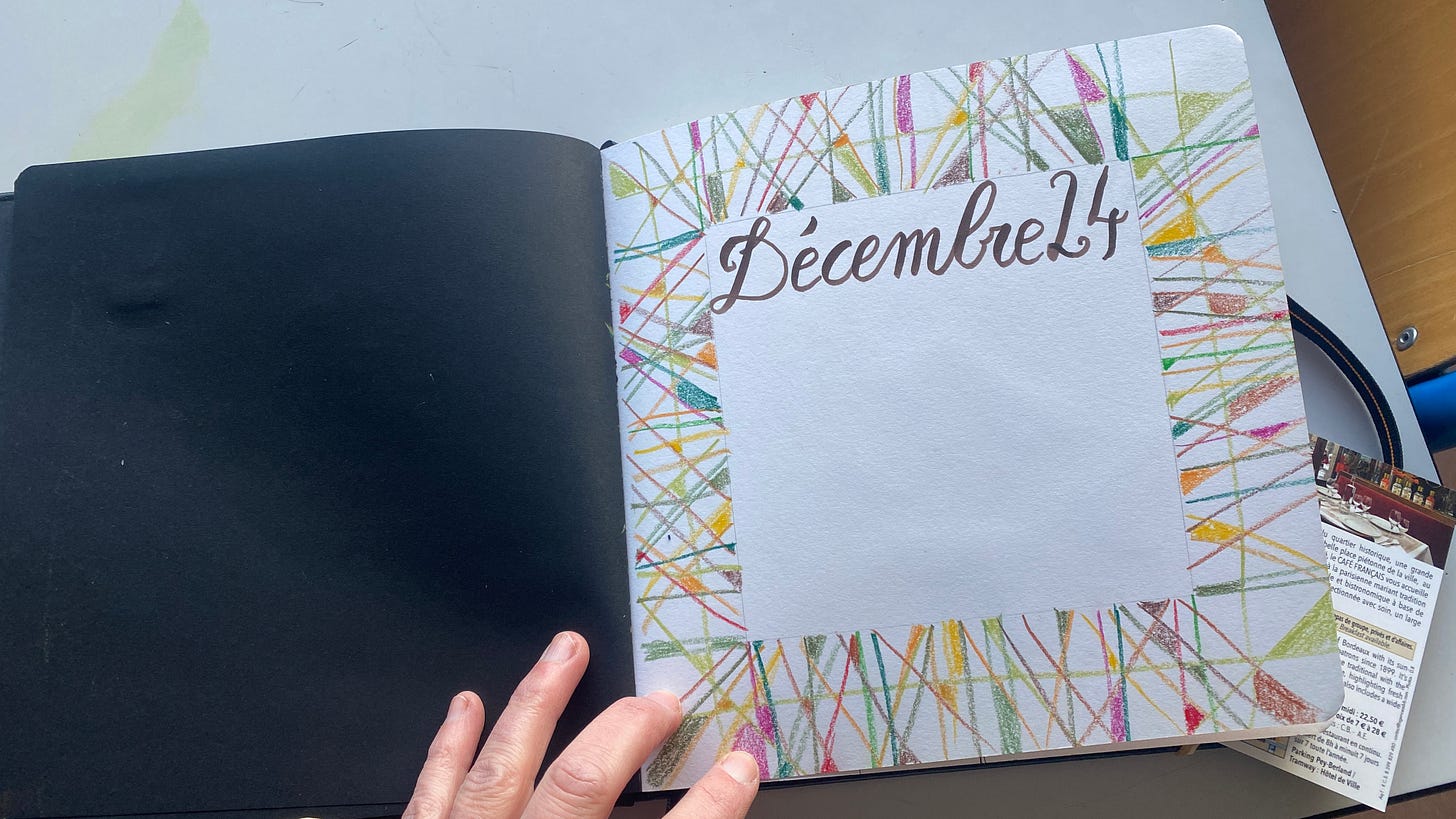 Décembre24
quartier historique, une grande
belle place piétonne de la ville, au
le CAFÉ FRANÇAIS vous accueille
à la parisienne mariant tradition
e et bistronomique à base de
ectionnée avec soin, un large
pas de groupe, privés et d'affaires.
Breakfast available.
Bordeaux with its
atrons since 1899. It's
e traditional with the
, highlighting fresh
also includes a wide
midi : 22.50 €
oix de 7 € à 28 €
: C.B. - A.E.
restaurant en continu.
ert de 8h à minuit 7 jours
sur 7 toute l'année.
Parking Pey-Berland /
Tramway : Hôtel de Ville